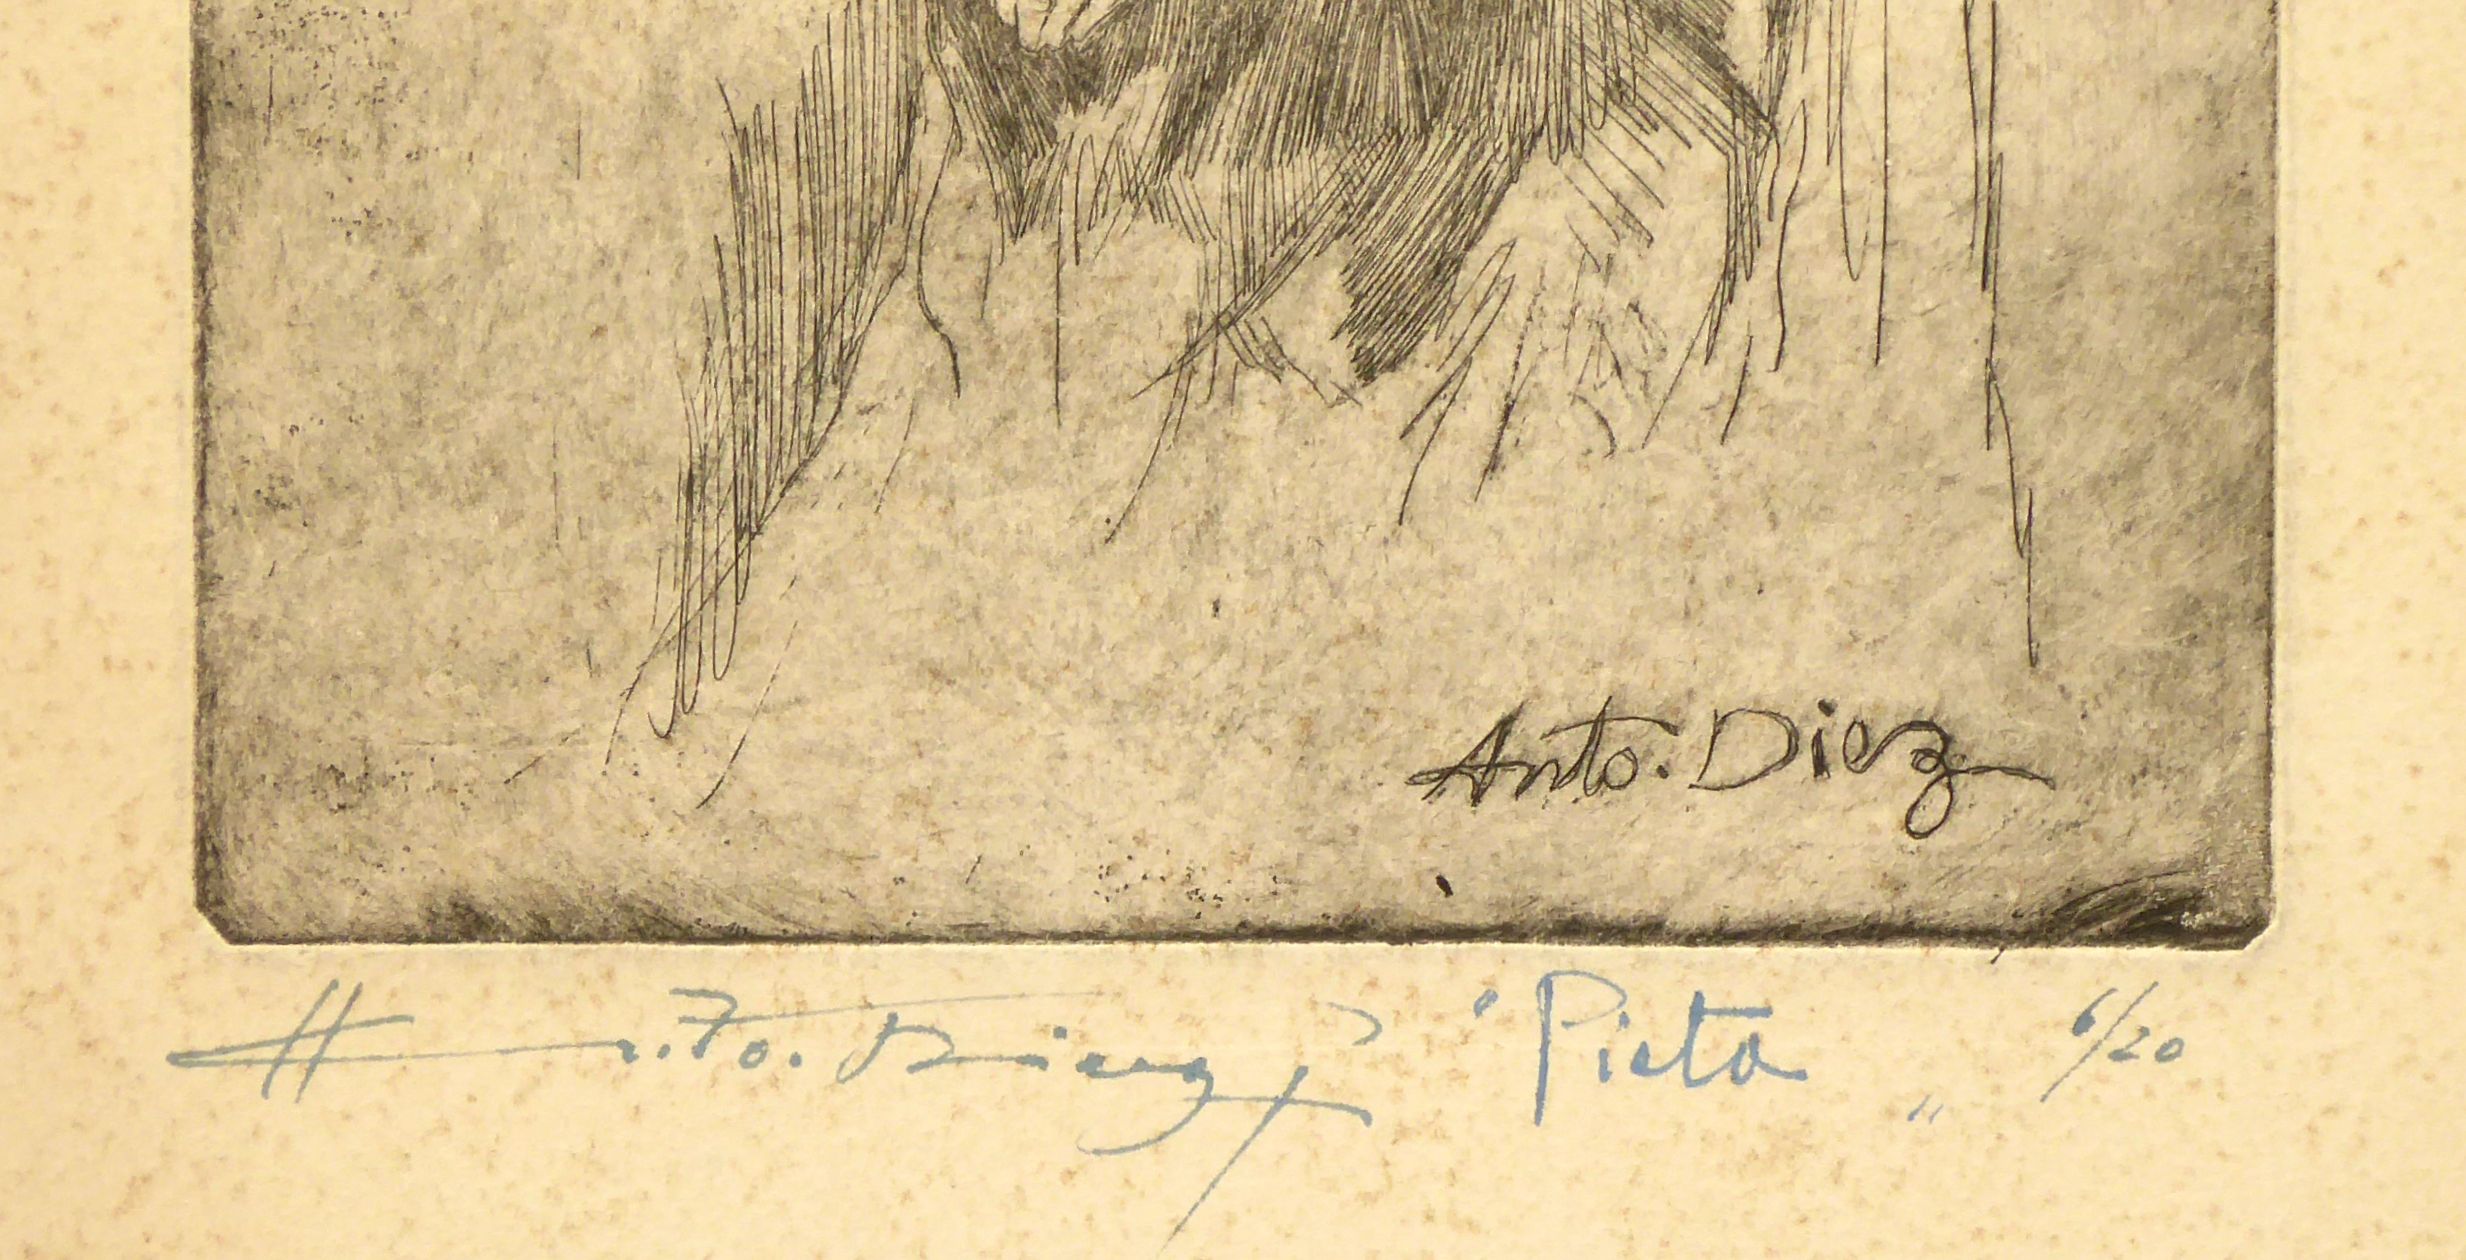 Anto. Diez
Anto. Diez "Pieta„ 6/20